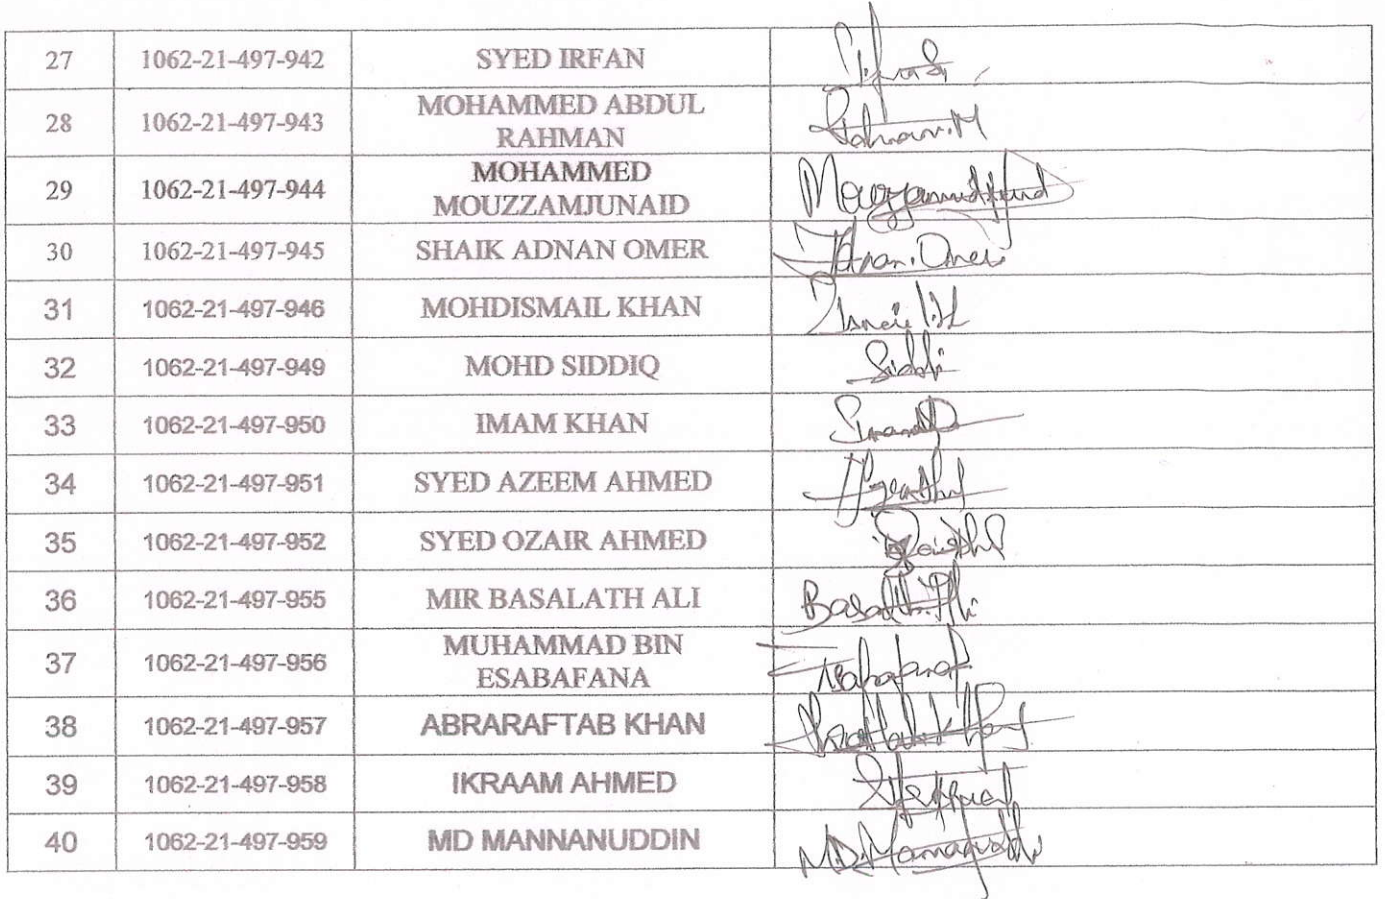 27 1062-21-497-942 SYED IRFAN
28 1062-21-497-943 MOHAMMED ABDUL
RAHMAN Rahman.M
29 1062-21-497-944 MOHAMMED
MOUZZAMJUNAID
30 1062-21-497-945 SHAIK ADNAN OMER Adnan.Omer
31 1062-21-497-946 MOHDISMAIL KHAN
32 1062-21-497-949 MOHD SIDDIQ
33 1062-21-497-950 IMAM KHAN
34 1062-21-497-951 SYED AZEEM AHMED
35 1062-21-497-952 SYED OZAIR AHMED
36 1062-21-497-955 MIR BASALATH ALI Basalath.Ali
37 1062-21-497-956 MUHAMMAD BIN
ESABAFANA
38 1062-21-497-957 ABRARAFTAB KHAN
39 1062-21-497-958 IKRAAM AHMED
40 1062-21-497-959 MD MANNANUDDIN